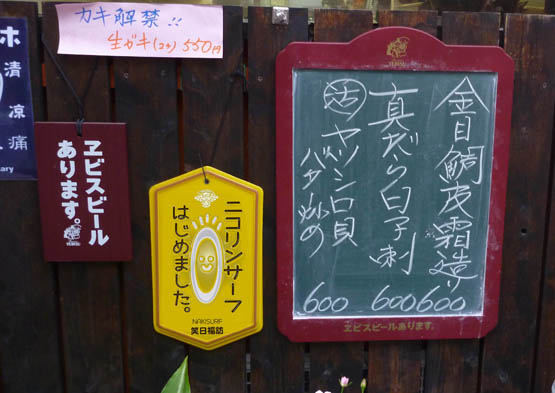 カキ解禁!!
生ガキ(2ケ) 550円
ホ
清涼
痛
ary
ヱビスビール
あります。
ニコリンサーフ
はじめました。
NAKISURF
笑日福訪
金目鯛皮霜造り 600
真だら白子刺 600
活 ヤツシロ貝
バター炒め 600
ヱビスビールあります。